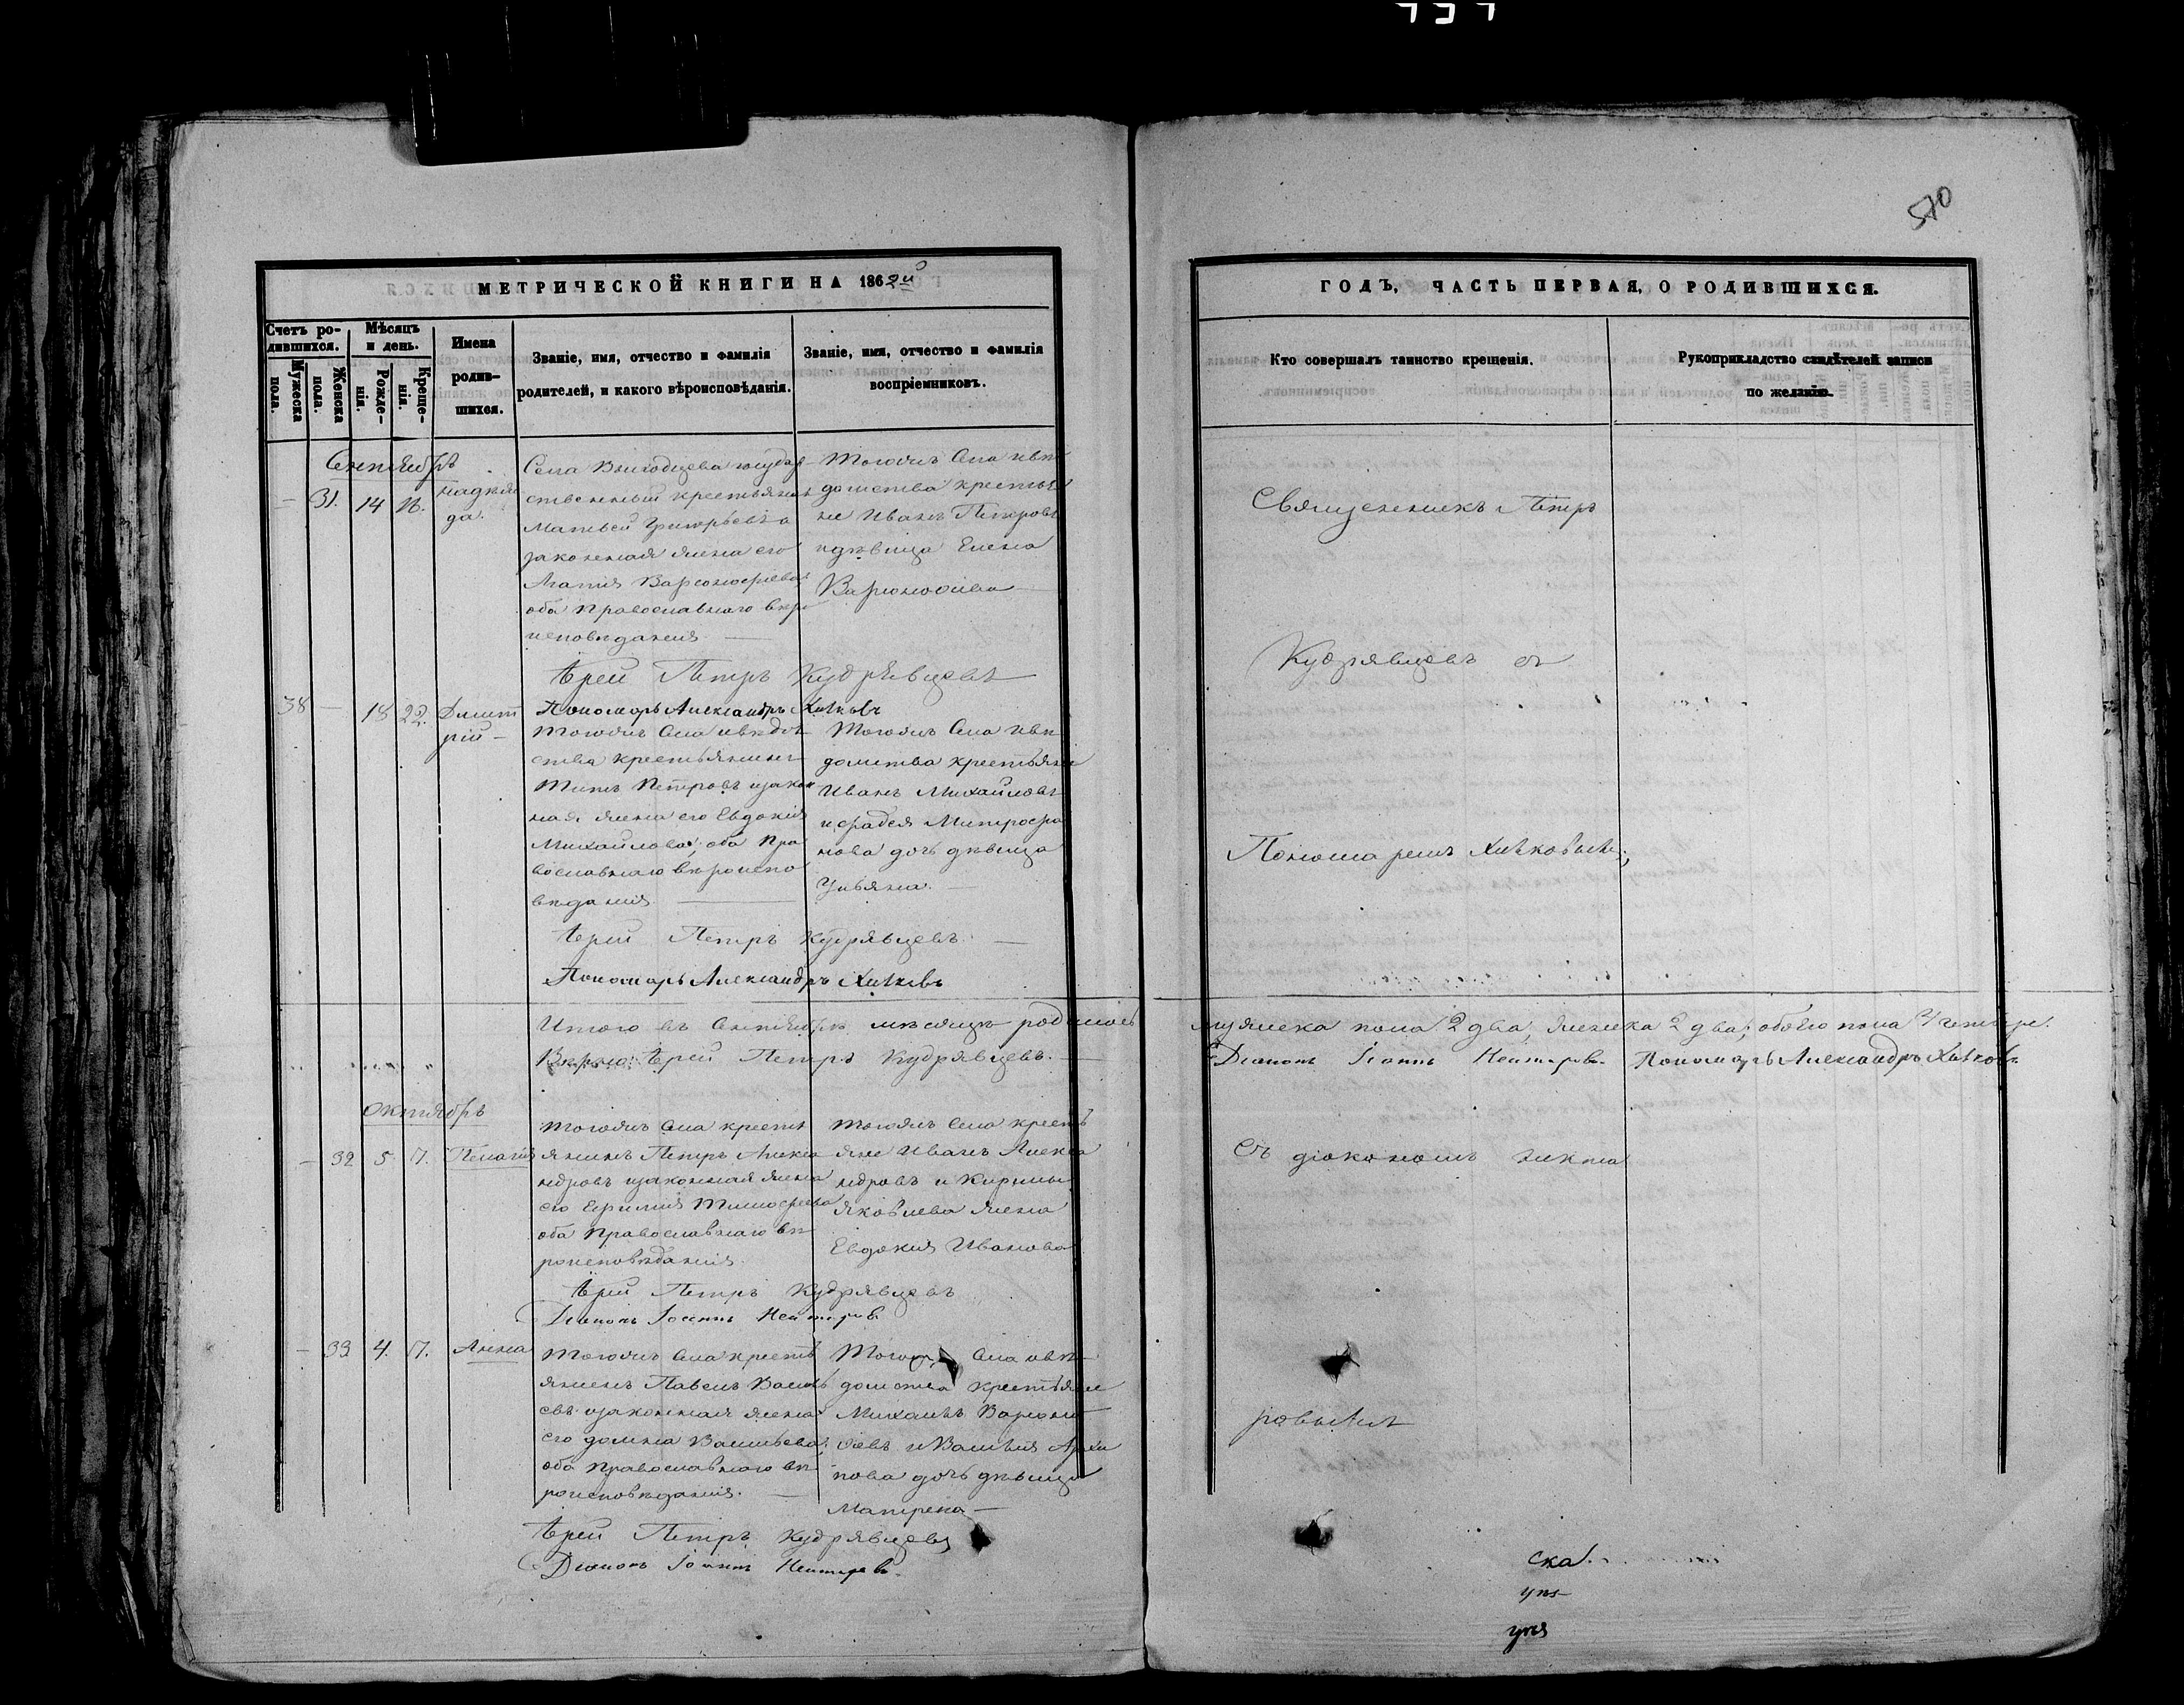 570
МЕТРИЧЕСКОЙ КНИГИ НА 1862й
ГОДЪ, ЧАСТЬ ПЕРВАЯ, О РОДИВШИХСЯ.
Счетъ ро-
дившихся.
Мужеска
пола.
Женска
пола.
Мѣсяцъ
и день.
Рожде-
нія.
Креще-
нія.
Имена
родив-
шихся.
Званіе, имя, отчество и фамилія
родителей, и какого вѣроисповѣданія.
Званіе, имя, отчество и фамилія
воспріемниковъ.
Кто совершалъ таинство крещенія.
Рукоприкладство свидѣтелей записи
по желанію.
Сентябрь
– 31. 14 16. Надеж
да.
Села Выходцева государ
ственный крестьянинъ
Матвей Григорьевъ и
законная жена его
Агапія Варсонофіева
оба православнаго вѣро
исповѣданія
Тогожъ села и вѣ
домства крестья
не Иванъ Петровъ
и дѣвица Елена
Варсонофіева
Іерей Петръ Кудрявцевъ
Пономарь Александръ Хилковъ
38 – 18 22. Димит
рій –
Тогожъ села и вѣдом
ства крестьянинъ
Титъ Петровъ и закон
ная жена его Евдокія
Михайлова; оба пра
вославнаго вѣроиспо
вѣданія
Тогожъ села и вѣ
домства крестьяне
Иванъ Михайловъ
Митрофа
нова дочь дѣвица
Ульяна.
Іерей Петръ Кудрявцевъ.
Пономарь Александръ Хилковъ
Священникъ Петръ
Кудрявцевъ съ
Пономаремъ Хилковымъ;
Итого въ Сентябрѣ мѣсяцѣ родилось
мужеска пола 2 два, женска 2 два; обоего пола 4 четыре.
Вѣрно: Іерей Петръ Кудрявцевъ.
Діаконъ Іоаннъ
Пономарь Александръ Хилковъ
Октябрь
– 32 5 7. Пелагія
Тогожъ села кресть
янинъ Петръ Алекса
ндровъ и законная жена
его Тимофеева
оба православнаго вѣ
роисповѣданія.
Тогожъ села кресть
яне Иванъ Алекса
ндровъ и Кирилы
Яковлева жена
Евдокия Иванова
Іерей Петръ Кудрявцевъ
Діаконъ Іоаннъ
– 33. 4. 7. Анна
Тогожъ села кресть
янинъ Павелъ Василь
евъ и законная жена
его Домна Васильева;
оба православнаго вѣ
роисповѣданія.
Тогожъ села и вѣ
домства крестьяне
Михаилъ Варсоно
фіевъ и Василія Архи
пова дочь дѣвица
Матрена –
Іерей Петръ Кудрявцевъ
Діаконъ Іоаннъ
Съ діакономъ
ска